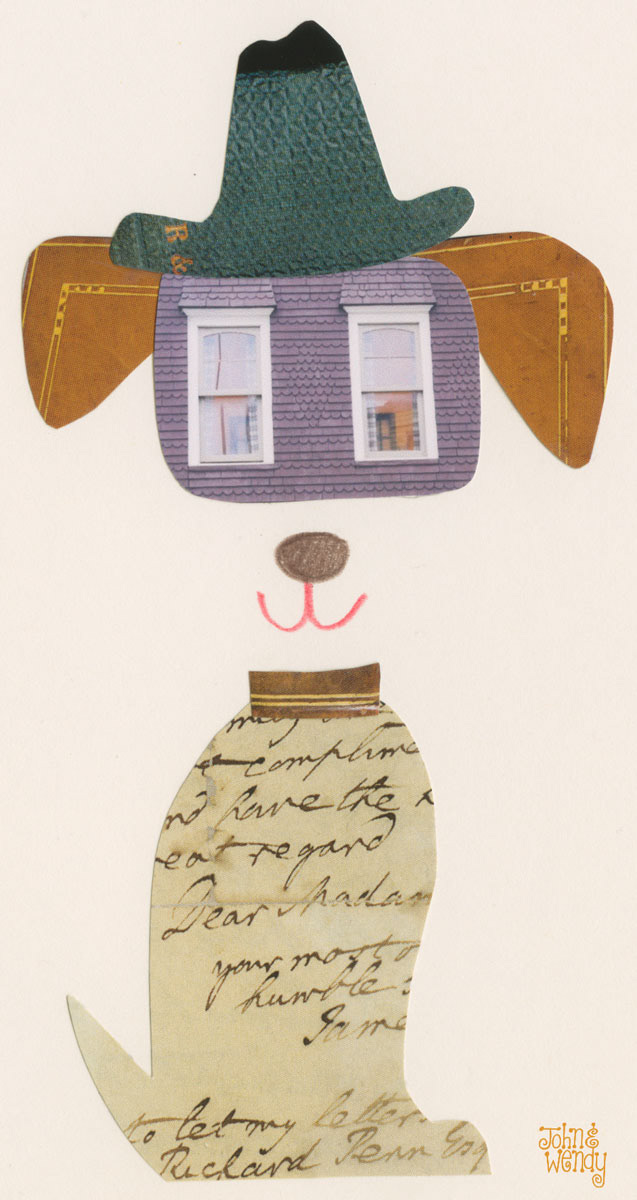 R &
may
complime
nd have the
eat regard
Dear Madam
your most o
humble s
Jame
to let my letters
Richard Penn Esq
John &
Wendy